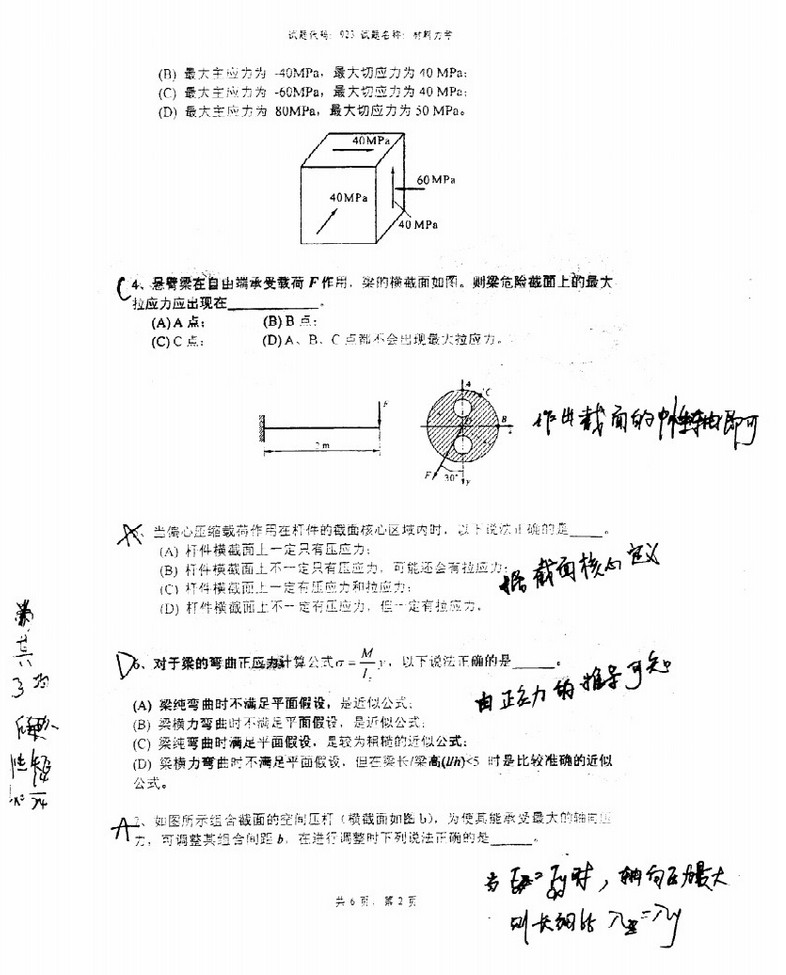 试题代码：923 试题名称：材料力学
(B) 最大主应力为 -40MPa，最大切应力为 40 MPa；
(C) 最大主应力为 -60MPa，最大切应力为 40 MPa；
(D) 最大主应力为 80MPa，最大切应力为 50 MPa。
40MPa
60 MPa
40MPa
40 MPa
C 4、悬臂梁在自由端承受载荷 F 作用，梁的横截面如图。则梁危险截面上的最大
拉应力应出现在________。
(A) A 点； (B) B 点；
(C) C 点； (D) A、B、C 点都不会出现最大拉应力。
F
2m
A
C
B
F
30°
y
作出截面的中性轴即可
A 、当偏心压缩载荷作用在杆件的截面核心区域内时，以下说法正确的是____。
(A) 杆件横截面上一定只有压应力；
(B) 杆件横截面上不一定只有压应力，可能还会有拉应力；
(C) 杆件横截面上一定有压应力和拉应力；
(D) 杆件横截面上不一定有压应力，但一定有拉应力。
截面核心定义
D 6、对于梁的弯曲正应力计算公式 σ = M/I_z y，以下说法正确的是____。
由正应力的推导可知
(A) 梁纯弯曲时不满足平面假设，是近似公式；
(B) 梁横力弯曲时不满足平面假设，是近似公式；
(C) 梁纯弯曲时满足平面假设，是较为粗糙的近似公式；
(D) 梁横力弯曲时不满足平面假设，但在梁长/梁高(l/h)<5 时是比较准确的近似
公式。
A 、如图所示组合截面的空间压杆（横截面如图 b），为使其能承受最大的轴向压
力，可调整其组合间距 b，在进行调整时下列说法正确的是____。
时，轴向压力最大
则长细比
共 6 页，第 2 页